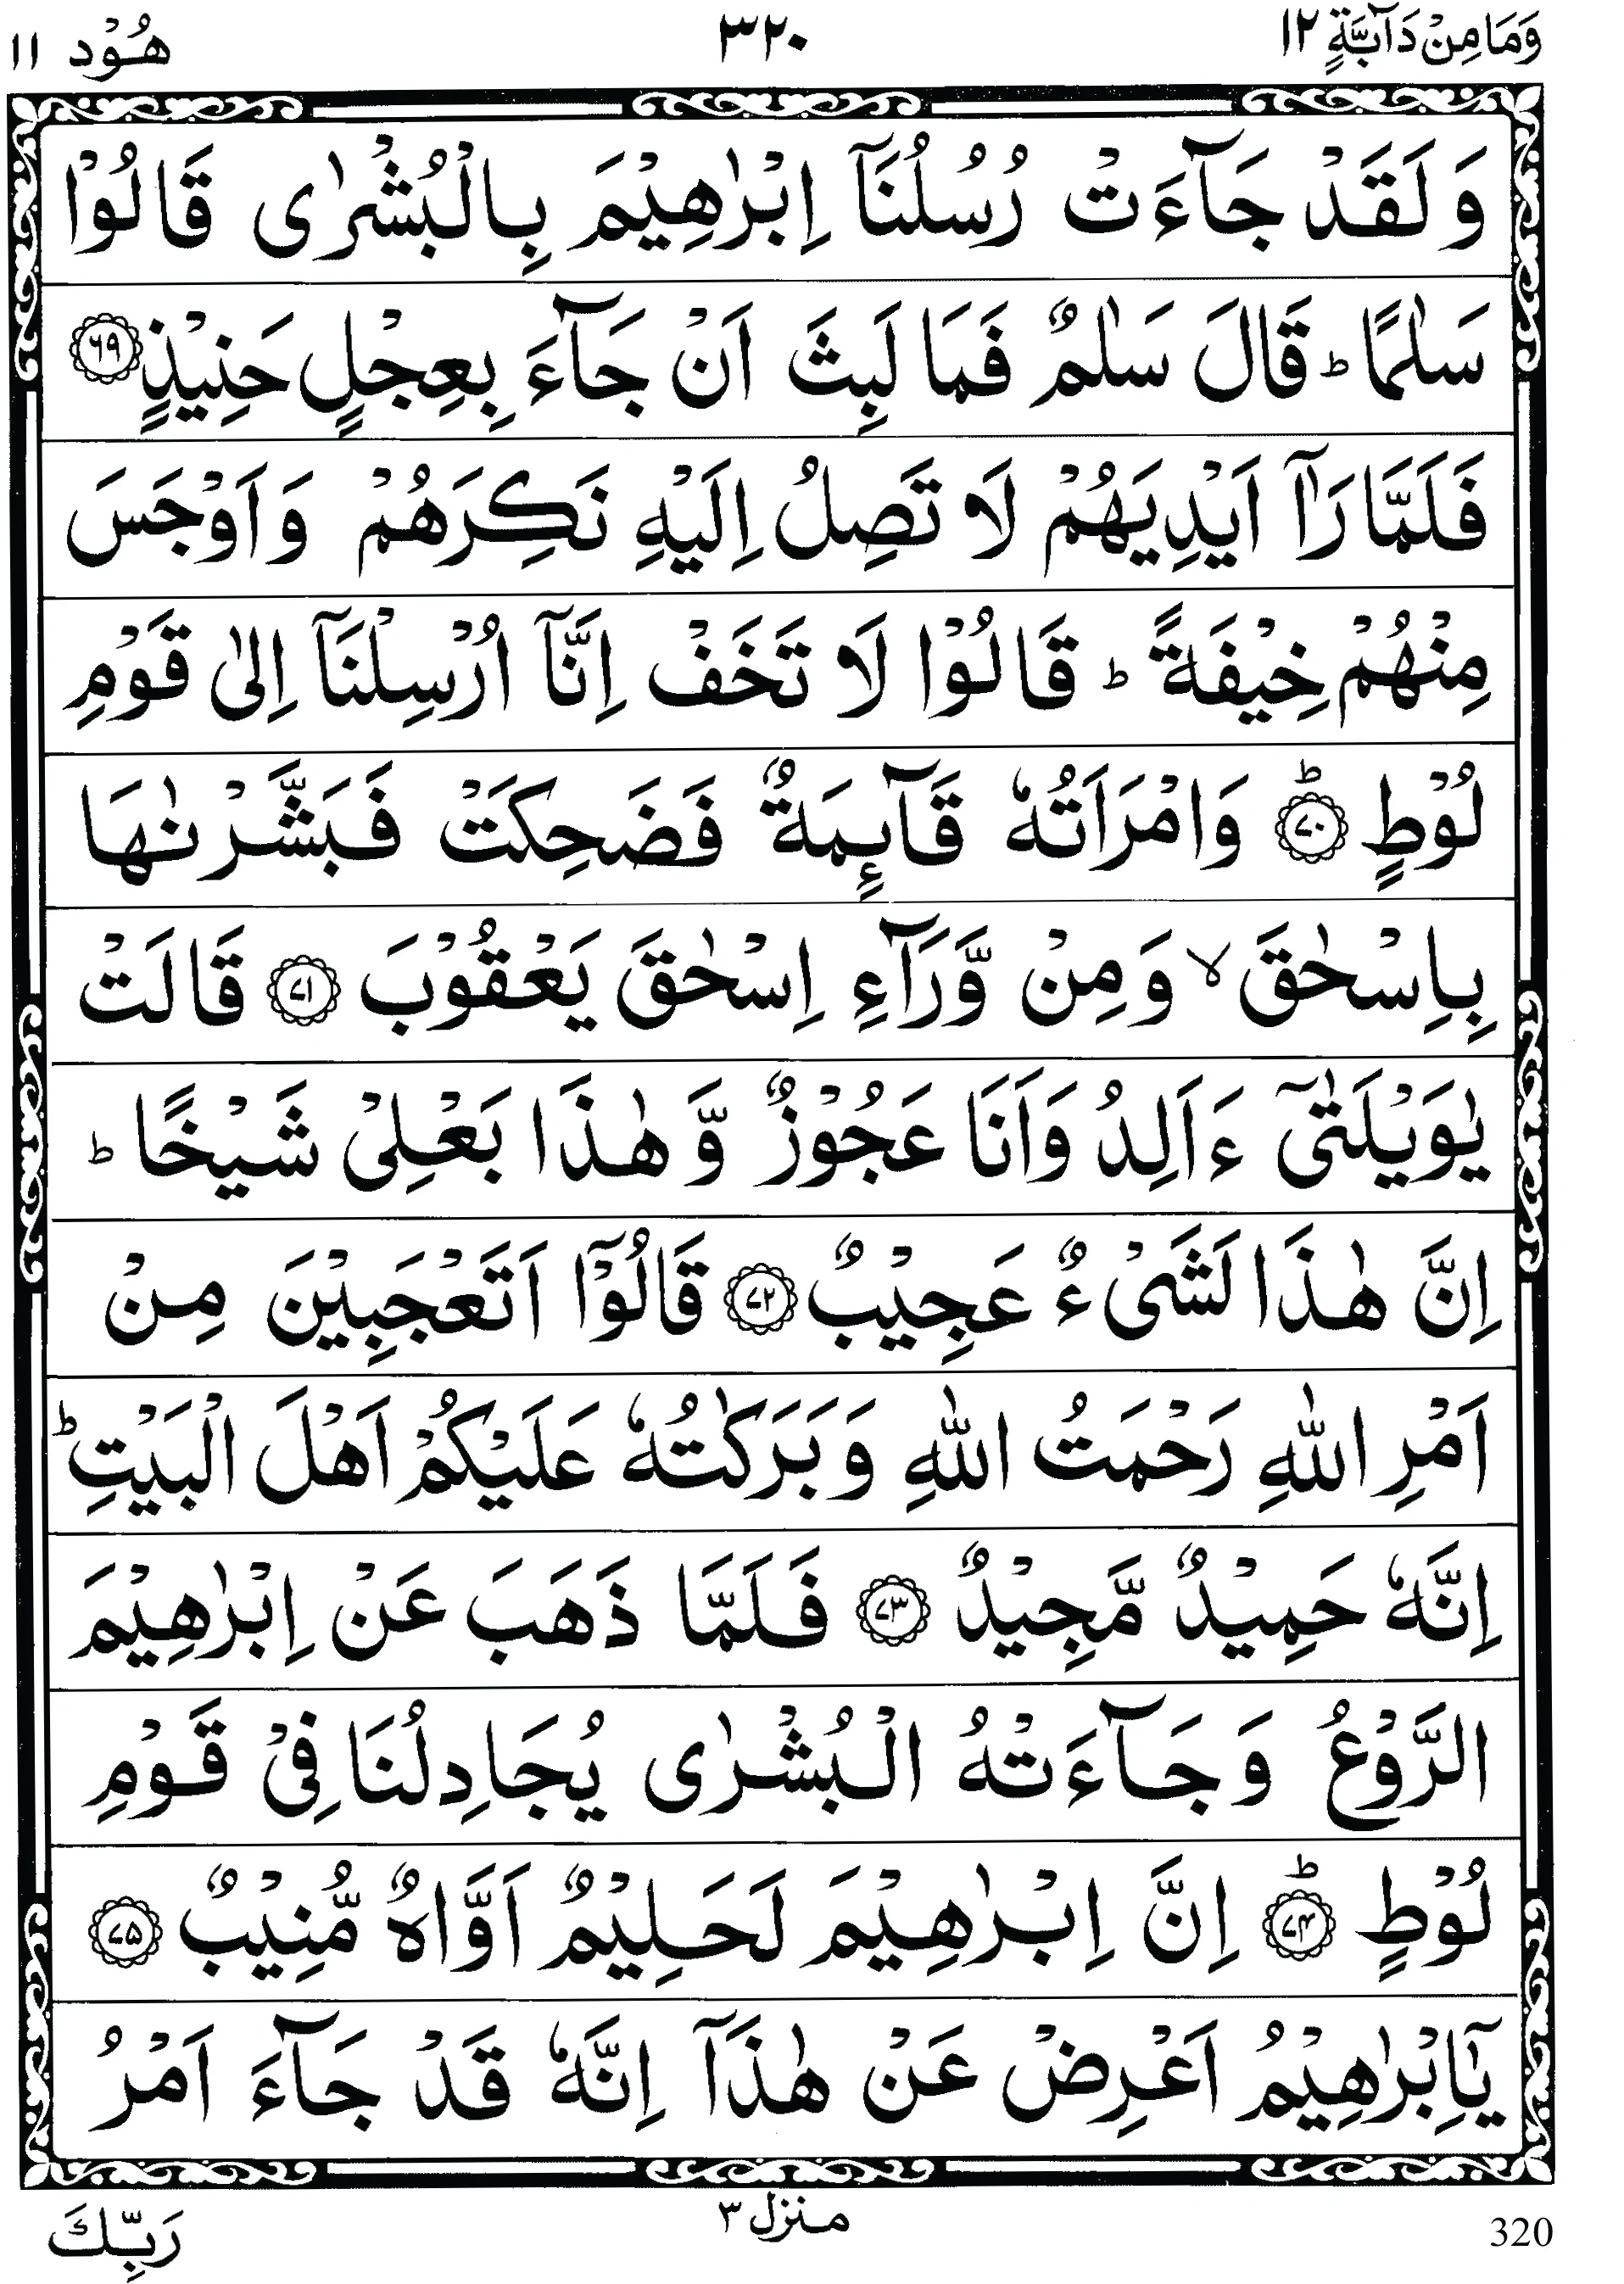 وَمَا مِنْ دَآبَّةٍ ١٢ ٣٢٠ هُوْد ١١
وَلَقَدْ جَآءَتْ رُسُلُنَآ اِبْرٰهِيْمَ بِالْبُشْرٰى قَالُوْا
سَلٰمًا ؕ قَالَ سَلٰمٌ فَمَا لَبِثَ اَنْ جَآءَ بِعِجْلٍ حَنِيْذٍ ﴿۶۹﴾
فَلَمَّا رَاٰۤ اَيْدِيَهُمْ لَا تَصِلُ اِلَيْهِ نَكِرَهُمْ وَاَوْجَسَ
مِنْهُمْ خِيْفَةً ؕ قَالُوْا لَا تَخَفْ اِنَّآ اُرْسِلْنَآ اِلٰى قَوْمِ
لُوْطٍ ؕ﴿۷۰﴾ وَامْرَاَتُهٗ قَآئِمَةٌ فَضَحِكَتْ فَبَشَّرْنٰهَا
بِاِسْحٰقَ ۙ وَمِنْ وَّرَآءِ اِسْحٰقَ يَعْقُوْبَ ﴿۷۱﴾ قَالَتْ
يٰوَيْلَتٰٓى ءَاَلِدُ وَاَنَا عَجُوْزٌ وَّهٰذَا بَعْلِيْ شَيْخًا ؕ
اِنَّ هٰذَا لَشَيْءٌ عَجِيْبٌ ﴿۷۲﴾ قَالُوْٓا اَتَعْجَبِيْنَ مِنْ
اَمْرِ اللّٰهِ رَحْمَتُ اللّٰهِ وَبَرَكٰتُهٗ عَلَيْكُمْ اَهْلَ الْبَيْتِ ؕ
اِنَّهٗ حَمِيْدٌ مَّجِيْدٌ ﴿۷۳﴾ فَلَمَّا ذَهَبَ عَنْ اِبْرٰهِيْمَ
الرَّوْعُ وَجَآءَتْهُ الْبُشْرٰى يُجَادِلُنَا فِيْ قَوْمِ
لُوْطٍ ؕ﴿۷۴﴾ اِنَّ اِبْرٰهِيْمَ لَحَلِيْمٌ اَوَّاهٌ مُّنِيْبٌ ﴿۷۵﴾
يٰٓاِبْرٰهِيْمُ اَعْرِضْ عَنْ هٰذَآ اِنَّهٗ قَدْ جَآءَ اَمْرُ
320 منزل ٣ رَبِّكَ